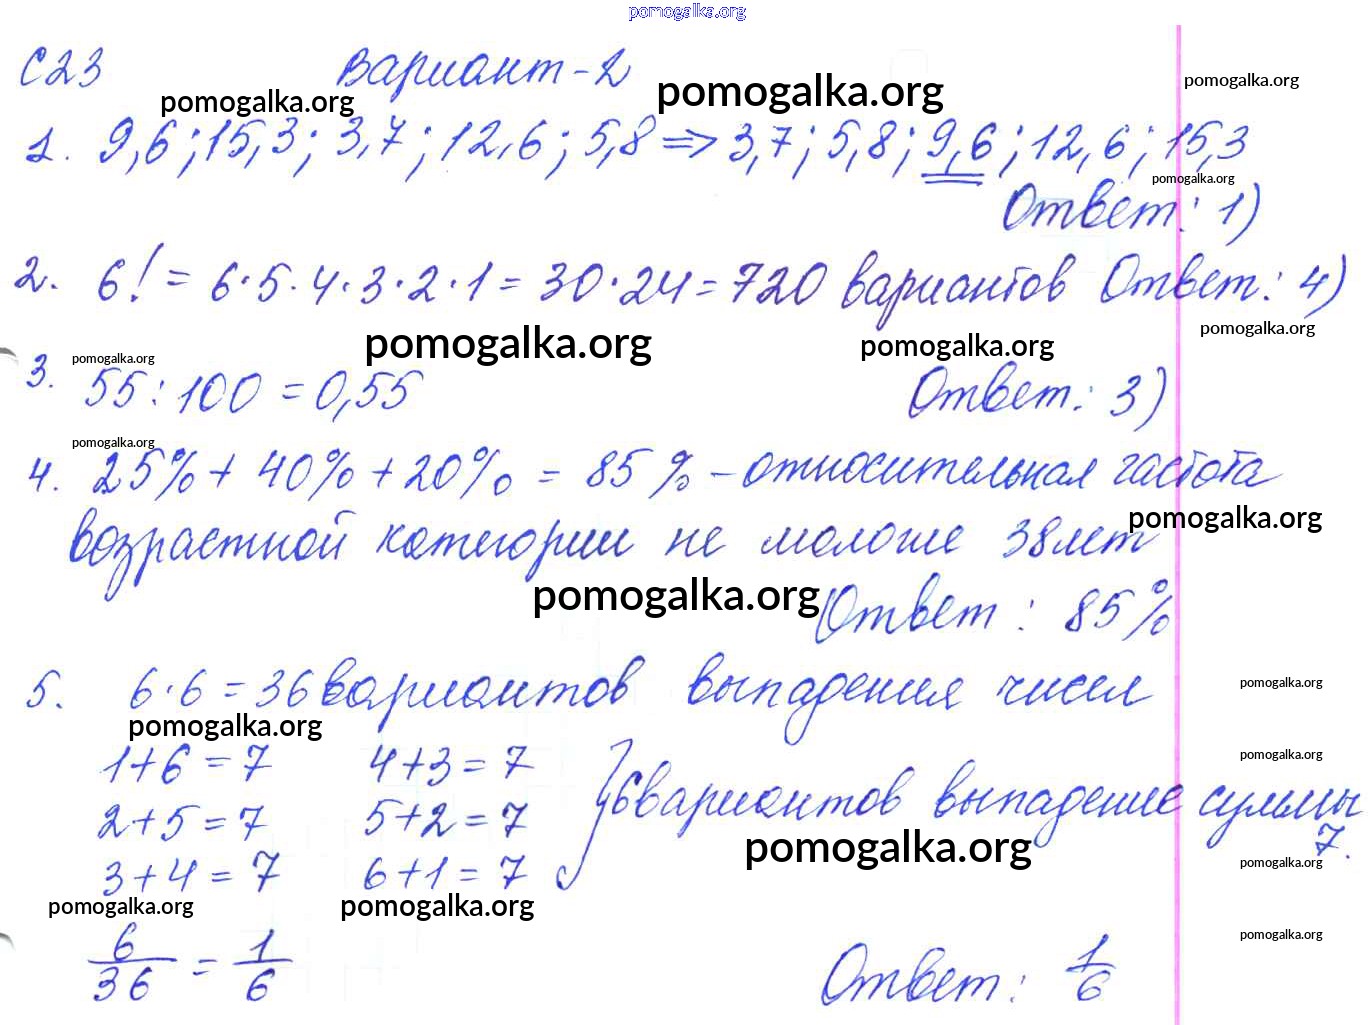 pomogalka.org
С23 Вариант-2
pomogalka.org pomogalka.org pomogalka.org
1. 9,6; 15,3; 3,7; 12,6; 5,8 => 3,7; 5,8; 9,6; 12,6; 15,3
pomogalka.org
Ответ: 1)
2. 6! = 6·5·4·3·2·1 = 30·24 = 720 вариантов Ответ: 4)
pomogalka.org pomogalka.org pomogalka.org
pomogalka.org
3. 55:100 = 0,55 Ответ: 3)
pomogalka.org
4. 25% + 40% + 20% = 85% - относительная частота
pomogalka.org
возрастной категории не моложе 38 лет
pomogalka.org
Ответ: 85%
5. 6·6 = 36 вариантов выпадения чисел
pomogalka.org
pomogalka.org
1+6=7 4+3=7
pomogalka.org
2+5=7 5+2=7 } 6 вариантов выпадение суммы
7.
pomogalka.org
pomogalka.org
3+4=7 6+1=7
pomogalka.org pomogalka.org
pomogalka.org
6/36 = 1/6 Ответ: 1/6